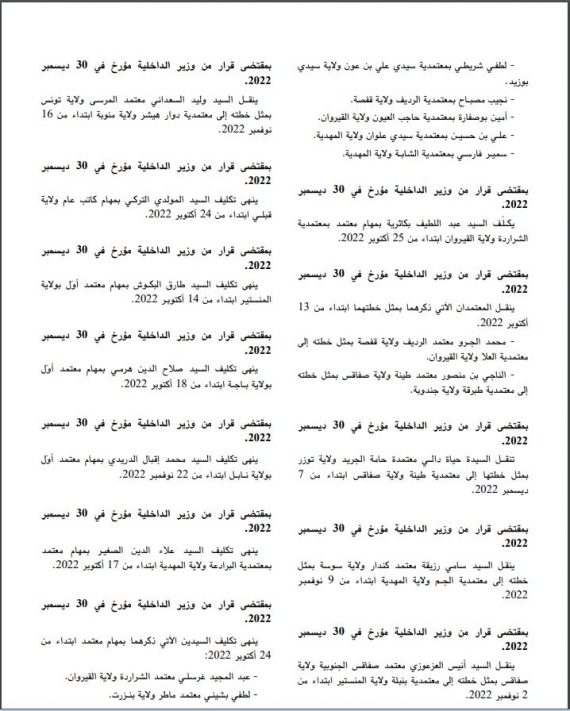 - لطفي شريطي بمعتمدية سيدي علي بن عون ولاية سيدي
بوزيد.
- نجيب مصباح بمعتمدية الرديف ولاية قفصة.
- أمين بوصفارة بمعتمدية حاجب العيون ولاية القيروان.
- علي بن حسين بمعتمدية سيدي علوان ولاية المهدية.
- سمير فارسي بمعتمدية الشابة ولاية المهدية.
بمقتضى قرار من وزير الداخلية مؤرخ في 30 ديسمبر
2022.
يكلّف السيد عبد اللطيف بكاثرية بمهام معتمد بمعتمدية
الشراردة ولاية القيروان ابتداء من 25 أكتوبر 2022.
بمقتضى قرار من وزير الداخلية مؤرخ في 30 ديسمبر
2022.
ينقل المعتمدان الآتي ذكرهما بمثل خطتهما ابتداء من 13
أكتوبر 2022.
- محمد الجرو معتمد الرديف ولاية قفصة بمثل خطته إلى
معتمدية العلا ولاية القيروان.
- الناجي بن منصور معتمد طينة ولاية صفاقس بمثل خطته
إلى معتمدية طبرقة ولاية جندوبة.
بمقتضى قرار من وزير الداخلية مؤرخ في 30 ديسمبر
2022.
تنقل السيدة حياة دالي معتمدة حامة الجريد ولاية توزر
بمثل خطتها إلى معتمدية طينة ولاية صفاقس ابتداء من 7
ديسمبر 2022.
بمقتضى قرار من وزير الداخلية مؤرخ في 30 ديسمبر
2022.
ينقل السيد سامي رزيقة معتمد كندار ولاية سوسة بمثل
خطته إلى معتمدية الجم ولاية المهدية ابتداء من 9 نوفمبر
2022.
بمقتضى قرار من وزير الداخلية مؤرخ في 30 ديسمبر
2022.
ينقل السيد أنيس العزعوزي معتمد صفاقس الجنوبية ولاية
صفاقس بمثل خطته إلى معتمدية بنبلة ولاية المنستير ابتداء من
2 نوفمبر 2022.
بمقتضى قرار من وزير الداخلية مؤرخ في 30 ديسمبر
2022.
ينقل السيد وليد السعداني معتمد المرسى ولاية تونس
بمثل خطته إلى معتمدية دوار هيشر ولاية منوبة ابتداء من 16
نوفمبر 2022.
بمقتضى قرار من وزير الداخلية مؤرخ في 30 ديسمبر
2022.
ينهى تكليف السيد المولدي التركي بمهام كاتب عام ولاية
قبلي ابتداء من 24 أكتوبر 2022.
بمقتضى قرار من وزير الداخلية مؤرخ في 30 ديسمبر
2022.
ينهى تكليف السيد طارق البكوش بمهام معتمد أول بولاية
المنستير ابتداء من 14 أكتوبر 2022.
بمقتضى قرار من وزير الداخلية مؤرخ في 30 ديسمبر
2022.
ينهى تكليف السيد صلاح الدين هرمي بمهام معتمد أول
بولاية باجة ابتداء من 18 أكتوبر 2022.
بمقتضى قرار من وزير الداخلية مؤرخ في 30 ديسمبر
2022.
ينهى تكليف السيد محمد إقبال الدريدي بمهام معتمد أول
بولاية نابل ابتداء من 22 نوفمبر 2022.
بمقتضى قرار من وزير الداخلية مؤرخ في 30 ديسمبر
2022.
ينهى تكليف السيد علاء الدين الصغير بمهام معتمد
بمعتمدية البرادعة ولاية المهدية ابتداء من 17 أكتوبر 2022.
بمقتضى قرار من وزير الداخلية مؤرخ في 30 ديسمبر
2022.
ينهى تكليف السيدين الآتي ذكرهما بمهام معتمد ابتداء من
24 أكتوبر 2022:
- عبد المجيد غرسلي معتمد الشراردة ولاية القيروان.
- لطفي بشيني معتمد ماطر ولاية بنزرت.